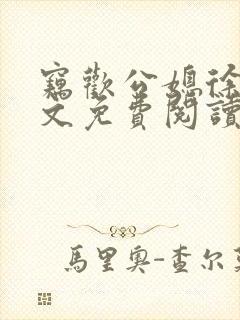 竊歡公媳徐
文免費閱讀
馬里奧-查尔